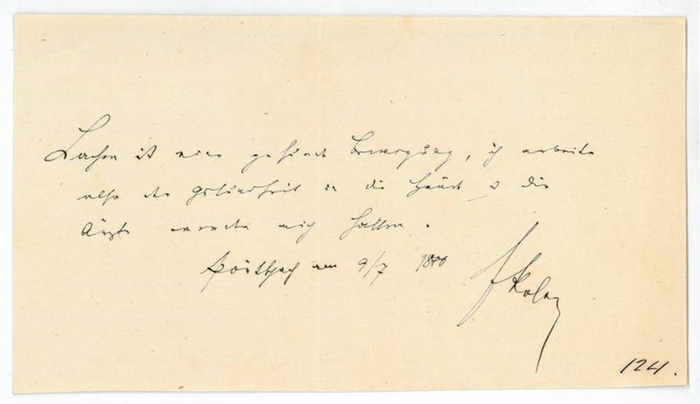 Lachen ist eine gesunde Bewegung, ich arbeite
also der Gesundheit in die Hände u die
Ärzte werden mich hassen.
am 9/7 1880
124.